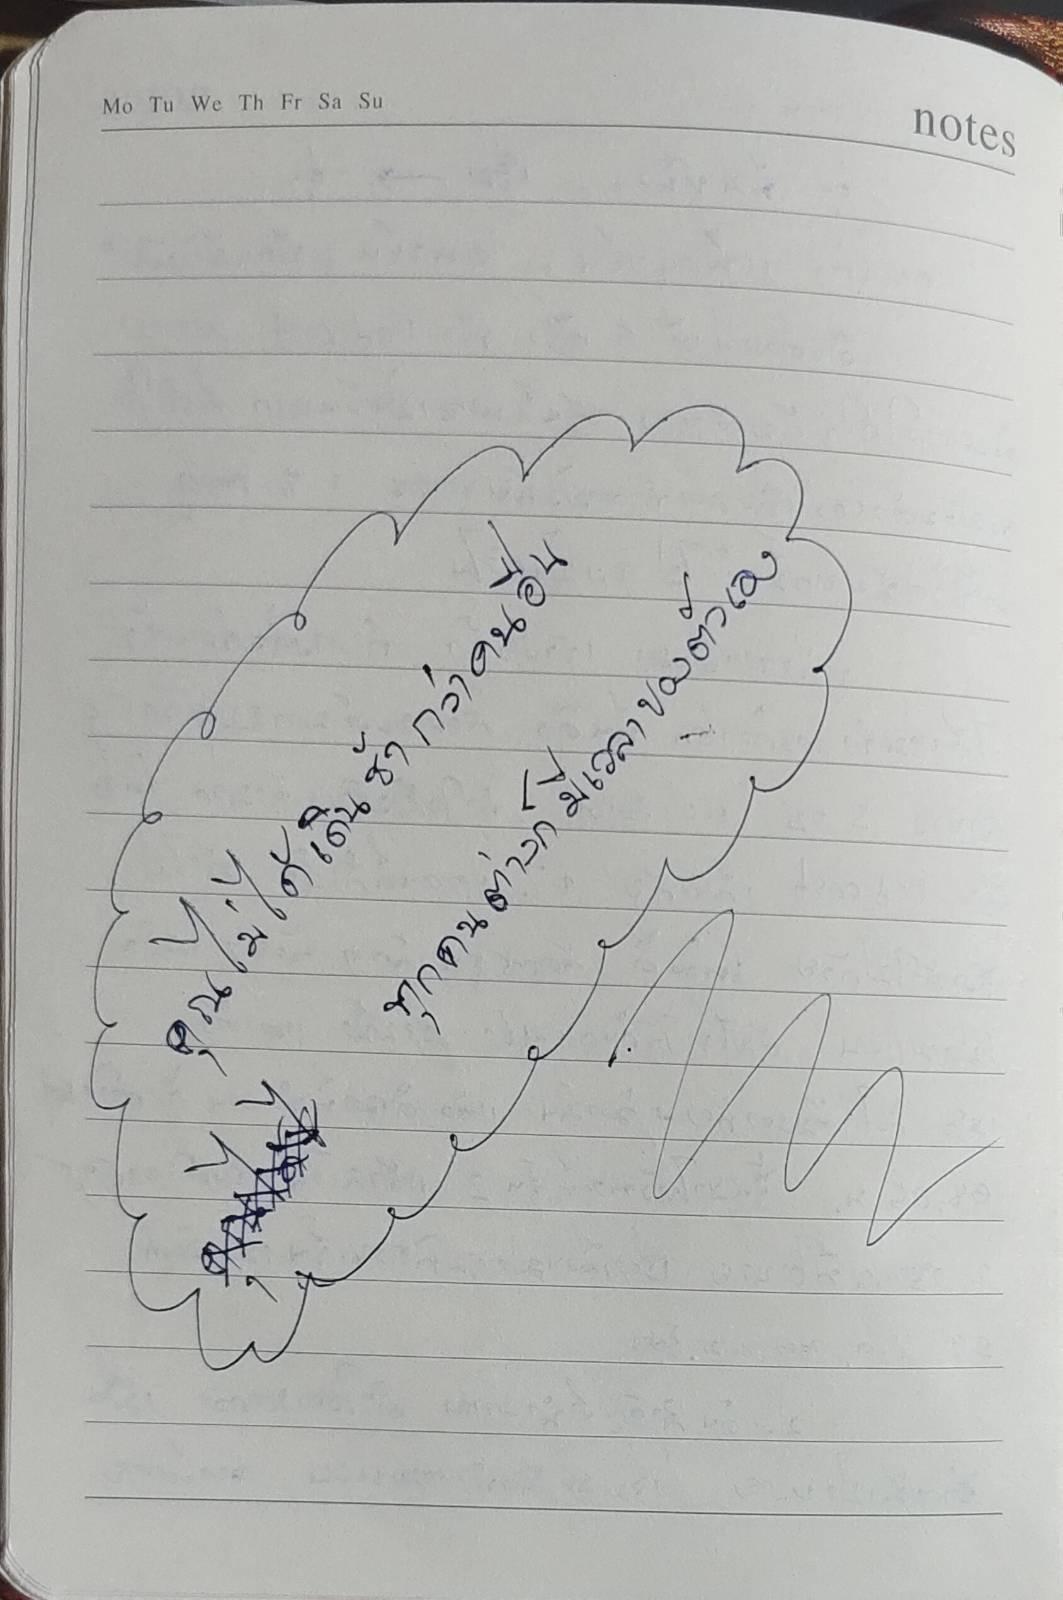 Mo Tu We Th Fr Sa Su
notes
คุณไม่ได้เดินช้ากว่าคนอื่น
ทุกคนต่างก็มีเวลาของตัวเอง